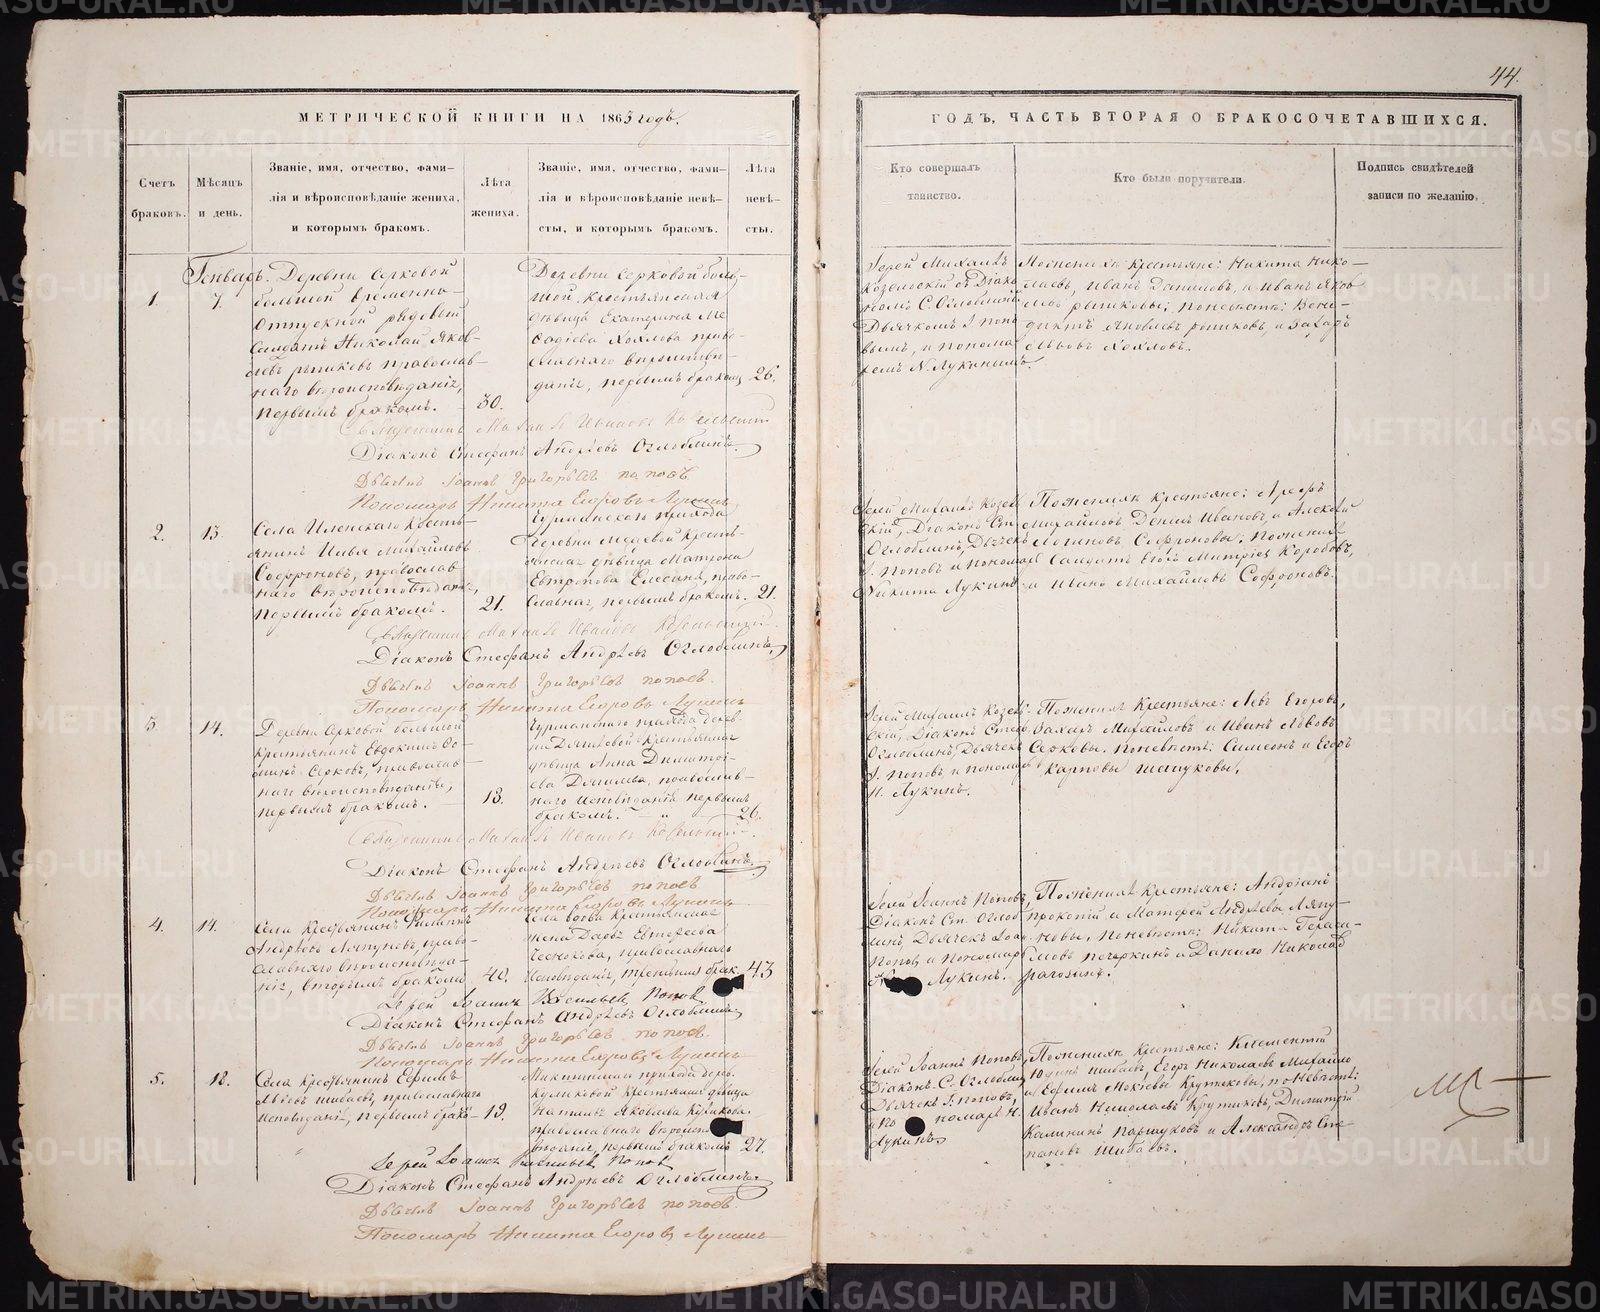 44.
МЕТРИЧЕСКОЙ КНИГИ НА 1865 годъ.
Счетъ браковъ.
Мѣсяцъ и день.
Званіе, имя, отчество, фами-
лія и вѣроисповѣданіе жениха,
и которымъ бракомъ.
Лѣта
жениха.
Званіе, имя, отчество, фами-
лія и вѣроисповѣданіе невѣ-
сты, и которымъ бракомъ.
Лѣта
невѣ-
сты.
ГОДЪ, ЧАСТЬ ВТОРАЯ О БРАКОСОЧЕТАВШИХСЯ.
Кто совершалъ
таинство.
Кто были поручители.
Подпись свидѣтелей
записи по желанію.
1.
Генварь.
7.
Деревни Серковой
большой временно-
отпускной рядовый
Солдатъ Николай Яков-
левъ православ-
наго вѣроисповѣданія,
первымъ бракомъ.
30.
Деревни Серковой боль-
шой, крестьянская
дѣвица Екатерина Ме
Хохлова право-
славнаго вѣроисповѣ-
данія, первымъ бракомъ
26.
Іерей Михаилъ
Козельскій съ Діако
номъ С. Оглоблинымъ
Дьячкомъ І. Попо
вымъ, и понома
ремъ Н. Лукинымъ.
По женихѣ крестьяне: Никита Нико-
лаевъ, Иванъ Даниловъ, и Иванъ Яков
левъ; по невѣстѣ: Вени-
диктъ Яковлевъ и Захаръ
Львовъ Хохловъ.
Священникъ Михаилъ Ивановъ Козельскій
Діаконъ Стефанъ Андрѣевъ Оглоблинъ.
Дьячекъ Іоаннъ Григорьевъ Поповъ
Пономарь Никита Егоровъ Лукинъ
2.
13.
Села Иленскаго кресть-
янинъ Илья Михайловъ
Софроновъ, православ
наго вѣроисповѣданія,
первымъ бракомъ.
21.
прихода
деревни кресть-
янская дѣвица Матрона
Евтропова право-
славная, первымъ бракомъ.
21.
Іерей Михаилъ Козель
скій, Діаконъ Ст
Оглоблинъ, Дьячекъ
І. Поповъ и пономарь
Никита Лукинъ
По женихѣ крестьяне:
Михайловъ Денисъ Ивановъ, и Алексѣй
Логиновъ Софроновы. По невѣстѣ
Солдатъ Коробовъ,
и Иванъ Михайловъ Софроновъ.
Священникъ Михаилъ Ивановъ Козельскій.
Діаконъ Стефанъ Андрѣевъ Оглоблинъ,
Дьячекъ Іоаннъ Григорьевъ Поповъ.
Пономарь Никита Егоровъ Лукинъ
3.
14.
Деревни Серковой большой
крестьянинъ Евдокимъ
Серковъ, православ-
наго вѣроисповѣданія,
первымъ бракомъ.
18.
прихода дерев-
ни крестьянская
дѣвица Анна Димитрі-
ева православ-
наго исповѣданія первымъ
бракомъ.
26.
Іерей Михаилъ Козель-
скій, Діаконъ Стеф
Оглоблинъ, Дьячекъ
І. Поповъ и пономарь
Н. Лукинъ.
По женихѣ крестьяне: Левъ Егоровъ,
Захаръ Михайловъ и Иванъ Львовъ
Серковы. По невѣстѣ: Симеонъ и Егоръ
Карповы
Священникъ Михаилъ Ивановъ Козельскій.
Діаконъ Стефанъ Андрѣевъ Оглоблинъ.
Дьячекъ Іоаннъ Григорьевъ Поповъ
Пономарь Никита Егоровъ Лукинъ
4.
14.
Села крестьянинъ Филиппъ
Андрѣевъ Ляпуновъ, право-
славнаго вѣроисповѣда-
нія, вторымъ бракомъ
40.
Села вдова крестьянская
жена Дарья Евтѣева
Чеснокова, православнаго
исповѣданія, третьимъ брак.
43
Іерей Іоаннъ Поповъ,
Діаконъ Ст. Оглоб
линъ, Дьячекъ Іоан.
Поповъ, и пономарь
Лукинъ.
По женихѣ крестьяне: Андріанъ
Прокопій и Матфей Андрѣевы Ляпу-
новы, по невѣстѣ: Никита Гераси-
мовъ и Данило Николаевъ
Рагозинъ.
Іерей Іоаннъ Васильевъ Поповъ
Діаконъ Стефанъ Андрѣевъ Оглоблинъ
Дьячекъ Іоаннъ Григорьевъ Поповъ.
Пономарь Никита Егоровъ Лукинъ
5.
18.
Села крестьянинъ Ефимъ
Львовъ Шибаевъ, православнаго
исповѣданія, первымъ брако-
19.
прихода дерев.
Куликовой крестьянская дѣвица
Наталья Яковлева Куликова.
православнаго вѣроиспо
вѣданія, первымъ бракомъ
27.
Іерей Іоаннъ Поповъ,
Діаконъ С. Оглоблин
Дьячекъ І. Поповъ,
и по номарь Н.
Лукинъ
По женихѣ крестьяне: Климентій
Юдинъ Шибаевъ, Егоръ Николаевъ Михайло
и Ефимъ Мокіевы Крутиковы, по невѣстѣ:
Иванъ Николаевъ Крутиковъ, Димитрій
Калининъ Паршуковъ и Александръ Сте
пановъ Шибаевъ.
Іерей Іоаннъ Васильевъ Поповъ
Діаконъ Стефанъ Андрѣевъ Оглоблинъ
Дьячекъ Іоаннъ Григорьевъ Поповъ.
Пономарь Никита Егоровъ Лукинъ
METRIKI.GASO-URAL.RU